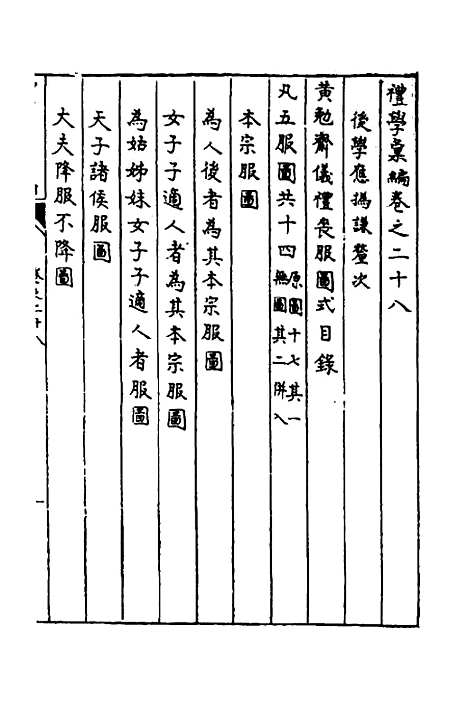 禮學彙編卷之二十八
後學應撝謙釐次
黄勉齋儀禮喪服圖式目錄
凡五服圖共十四原圖十七其一無圖其二併入
本宗服圖
為人後者為其本宗服圖
女子子適人者為其本宗服圖
為姑姊妹女子子適人者服圖
天子諸侯服圖
大夫降服不降圖
卷之二十八
一